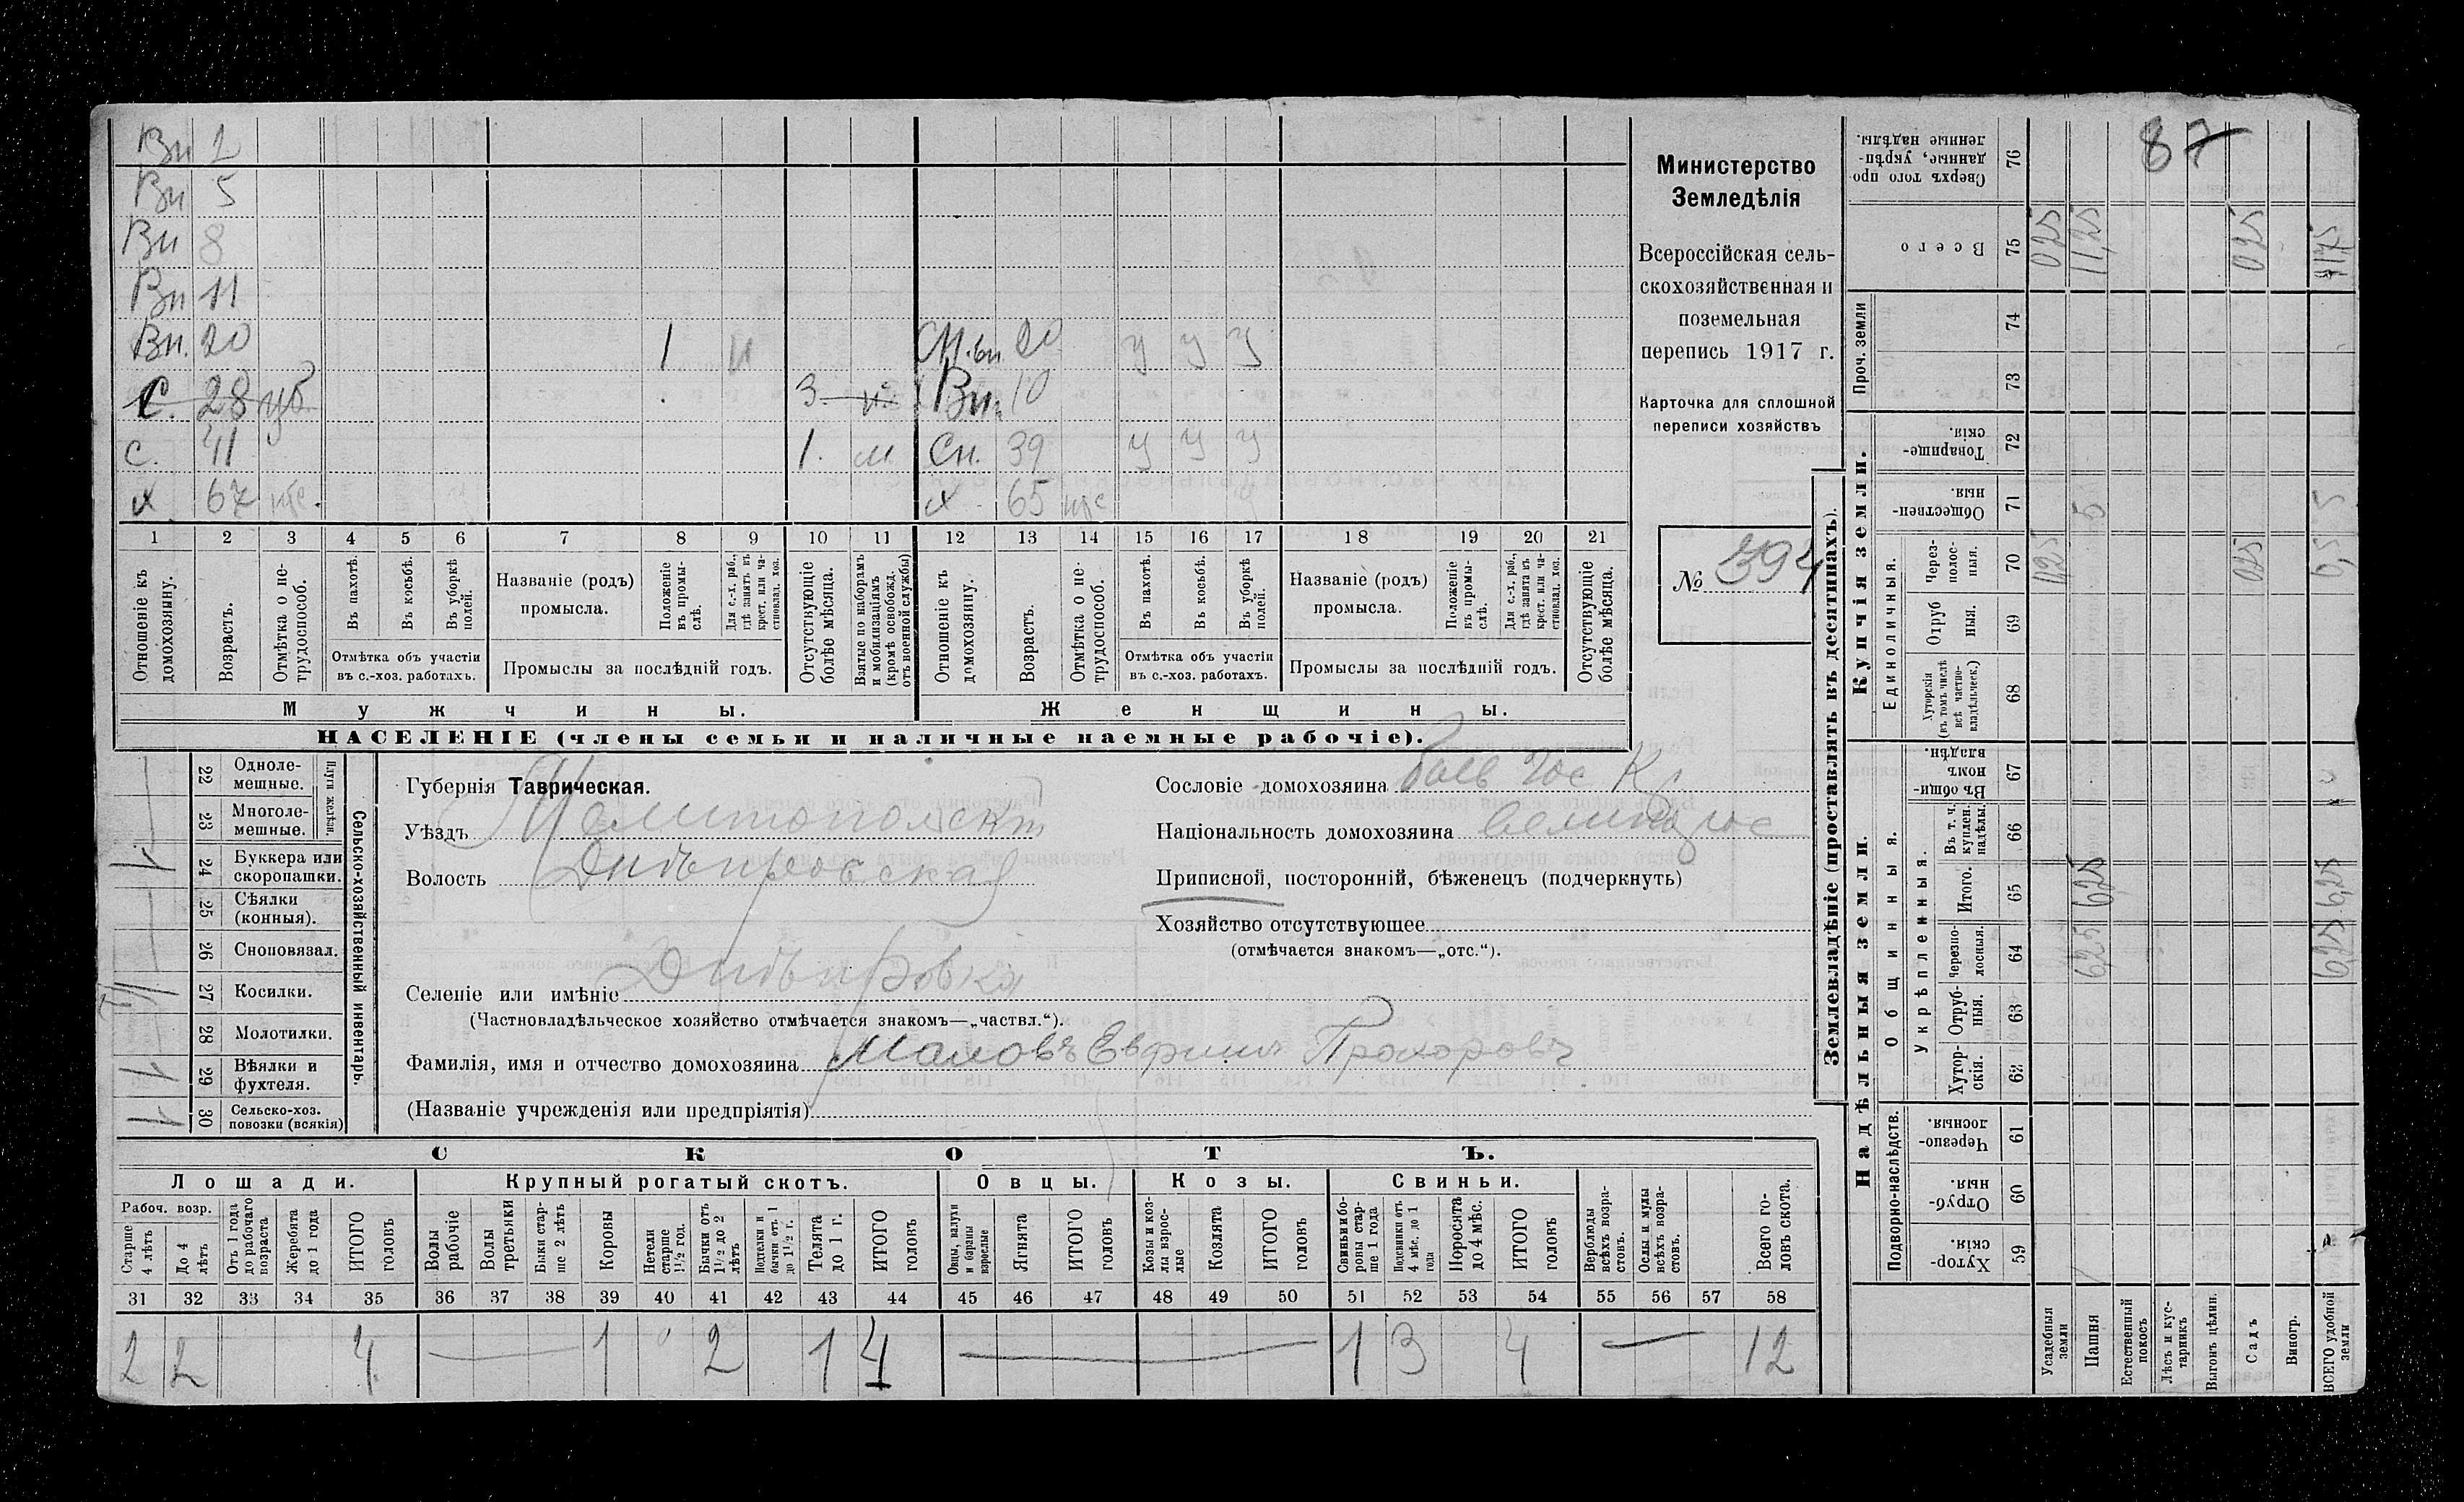 Вн 2
Вн 5
Вн 8
Вн 11
Вн. 20 1 и См.вн. 20 у у у
С. 28 уб 3 м. Вн. 10
с. 41 1. м. Сн. 39 у у у
х 67 х 65
1 2 3 4 5 6 7 8 9 10 11 12 13 14 15 16 17 18 19 20 21
Отношеніе къ домохозяину.
Возрастъ.
Отмѣтка о нетрудоспособ.
Въ пахотѣ.
Въ косьбѣ.
Въ уборкѣ полей.
Отмѣтка объ участіи
въ с.-хоз. работахъ.
Названіе (родъ)
промысла.
Положеніе въ промыслѣ.
Для с.-х. раб., гдѣ занятъ въ крест. или частновлад. хоз.
Промыслы за послѣдній годъ.
Отсутствующіе болѣе мѣсяца.
Взятые по наборамъ и мобилизаціямъ (кромѣ освобожд. отъ военной службы)
Отношеніе къ домохозяину.
Возрастъ.
Отмѣтка о нетрудоспособ.
Въ пахотѣ.
Въ косьбѣ.
Въ уборкѣ полей.
Отмѣтка объ участіи
въ с.-хоз. работахъ.
Названіе (родъ)
промысла.
Положеніе въ промыслѣ.
Для с.-х. раб., гдѣ занята въ крест. или частновлад. хоз.
Промыслы за послѣдній годъ.
Отсутствующіе болѣе мѣсяца.
Мужчины. Женщины.
НАСЕЛЕНІЕ (члены семьи и наличные наемные рабочіе).
Министерство
Земледѣлія
Всероссійская сель-
скохозяйственная и
поземельная
перепись 1917 г.
Карточка для сплошной
переписи хозяйствъ
№ 394
22 Одноле-
мешные.
23 Многоле-
мешные.
Плуги желѣзн.
24 Буккера или
скоропашки.
25 Сѣялки
(конныя).
26 Сноповязал.
27 Косилки.
28 Молотилки.
29 Вѣялки и
фухтеля.
30 Сельско-хоз.
повозки (всякія)
Сельско-хозяйственный инвентарь.
Губернія Таврическая.
Уѣздъ Мелитопольскій
Волость Днѣпровская
Селеніе или имѣніе Днѣпровка
(Частновладѣльческое хозяйство отмѣчается знакомъ—„частвл.“).
Фамилія, имя и отчество домохозяина Маловъ Ефимъ Прохоровъ
(Названіе учрежденія или предпріятія)
Сословіе домохозяина бывъ Гос Кр
Національность домохозяина великорос
Приписной, посторонній, бѣженецъ (подчеркнуть)
Хозяйство отсутствующее
(отмѣчается знакомъ—„отс.“).
СКОТЪ.
Лошади. Крупный рогатый скотъ. Овцы. Козы. Свиньи.
Рабоч. возр.
Старше 4 лѣтъ
До 4 лѣтъ
Отъ 1 года до рабочаго возраста
Жеребята до 1 года
ИТОГО головъ
Волы рабочіе
Волы третьяки
Быки старше 2 лѣтъ
Коровы
Нетели старше 1 1/2 год.
Бычки отъ 1 1/2 до 2 лѣтъ
Подтелки и бычки отъ 1 до 1 1/2 г.
Телята до 1 г.
ИТОГО головъ
Овцы, валухи и бараны взрослые
Ягнята
ИТОГО головъ
Козы и козлы взрослые
Козлята
ИТОГО головъ
Свиньи и боровы старше 1 года
Подсвинки отъ 4 мѣс. до 1 года
Поросята до 4 мѣс.
ИТОГО головъ
Верблюды всѣхъ возрастовъ.
Ослы и мулы всѣхъ возрастовъ.
Всего головъ скота.
31 32 33 34 35 36 37 38 39 40 41 42 43 44 45 46 47 48 49 50 51 52 53 54 55 56 57 58
2 2 4 — 1 2 1 4 — 1 3 4 — 12
Землевладѣніе (проставлять въ десятинахъ).
87
Сверхъ того проданные, укрѣпленные надѣлы. 76
Всего 75 025 11,25 025 11,75
Проч. земли 74
73
Купчія земли.
Товарищескія. 72
Общественныя. 71 5 5
Единоличныя.
Черезполосныя. 70 0,25 025
Отрубныя. 69
Хуторскія (въ томъ числѣ всѣ частновладѣльческ.) 68
Надѣльныя земли.
Общинныя.
Въ общинномъ владѣн. 67
Укрѣпленныя.
Въ т. ч. куплен. надѣлы. 66
Итого. 65 6,25 6,25
Черезполосныя. 64 6,25 6,25
Отрубныя. 63
Хуторскія. 62
Подворно-наслѣдств.
Черезполосныя. 61
Отрубныя. 60
Хуторскія. 59
Усадебныя земли
Пашня
Естественный покосъ
Лѣсъ и кустарникъ
Выгонъ цѣлин.
Садъ
Виногр.
ВСЕГО удобной земли